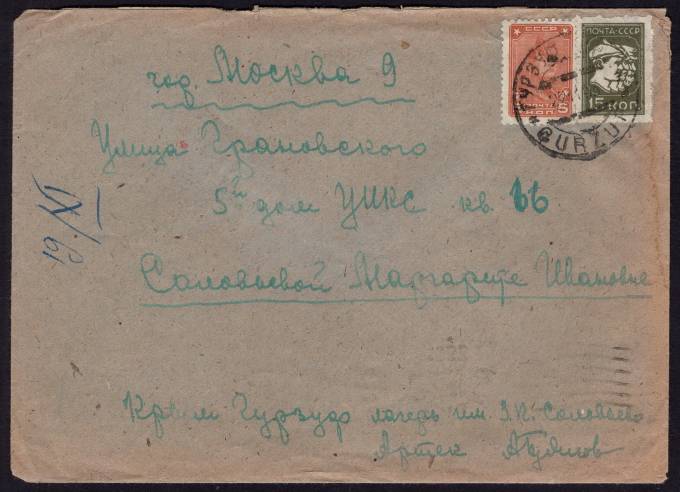 ПОЧТА СССР
15 КОП.
5
ПОЧТА
ГУРЗУФ
GURZUF
гор. Москва 9
Улица Грановского
5й дом УИКС кв. 66
Соловьевой Маргарите Ивановне
19/IX
Крым Гурзуф лагерь им. З.П. Соловьева
Артек